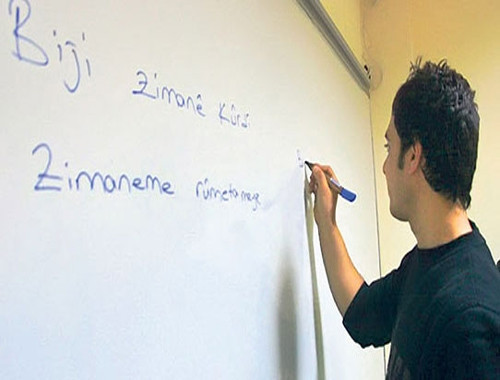 Biji zimanê Kûrdi
Zimaneme rûmeta meye